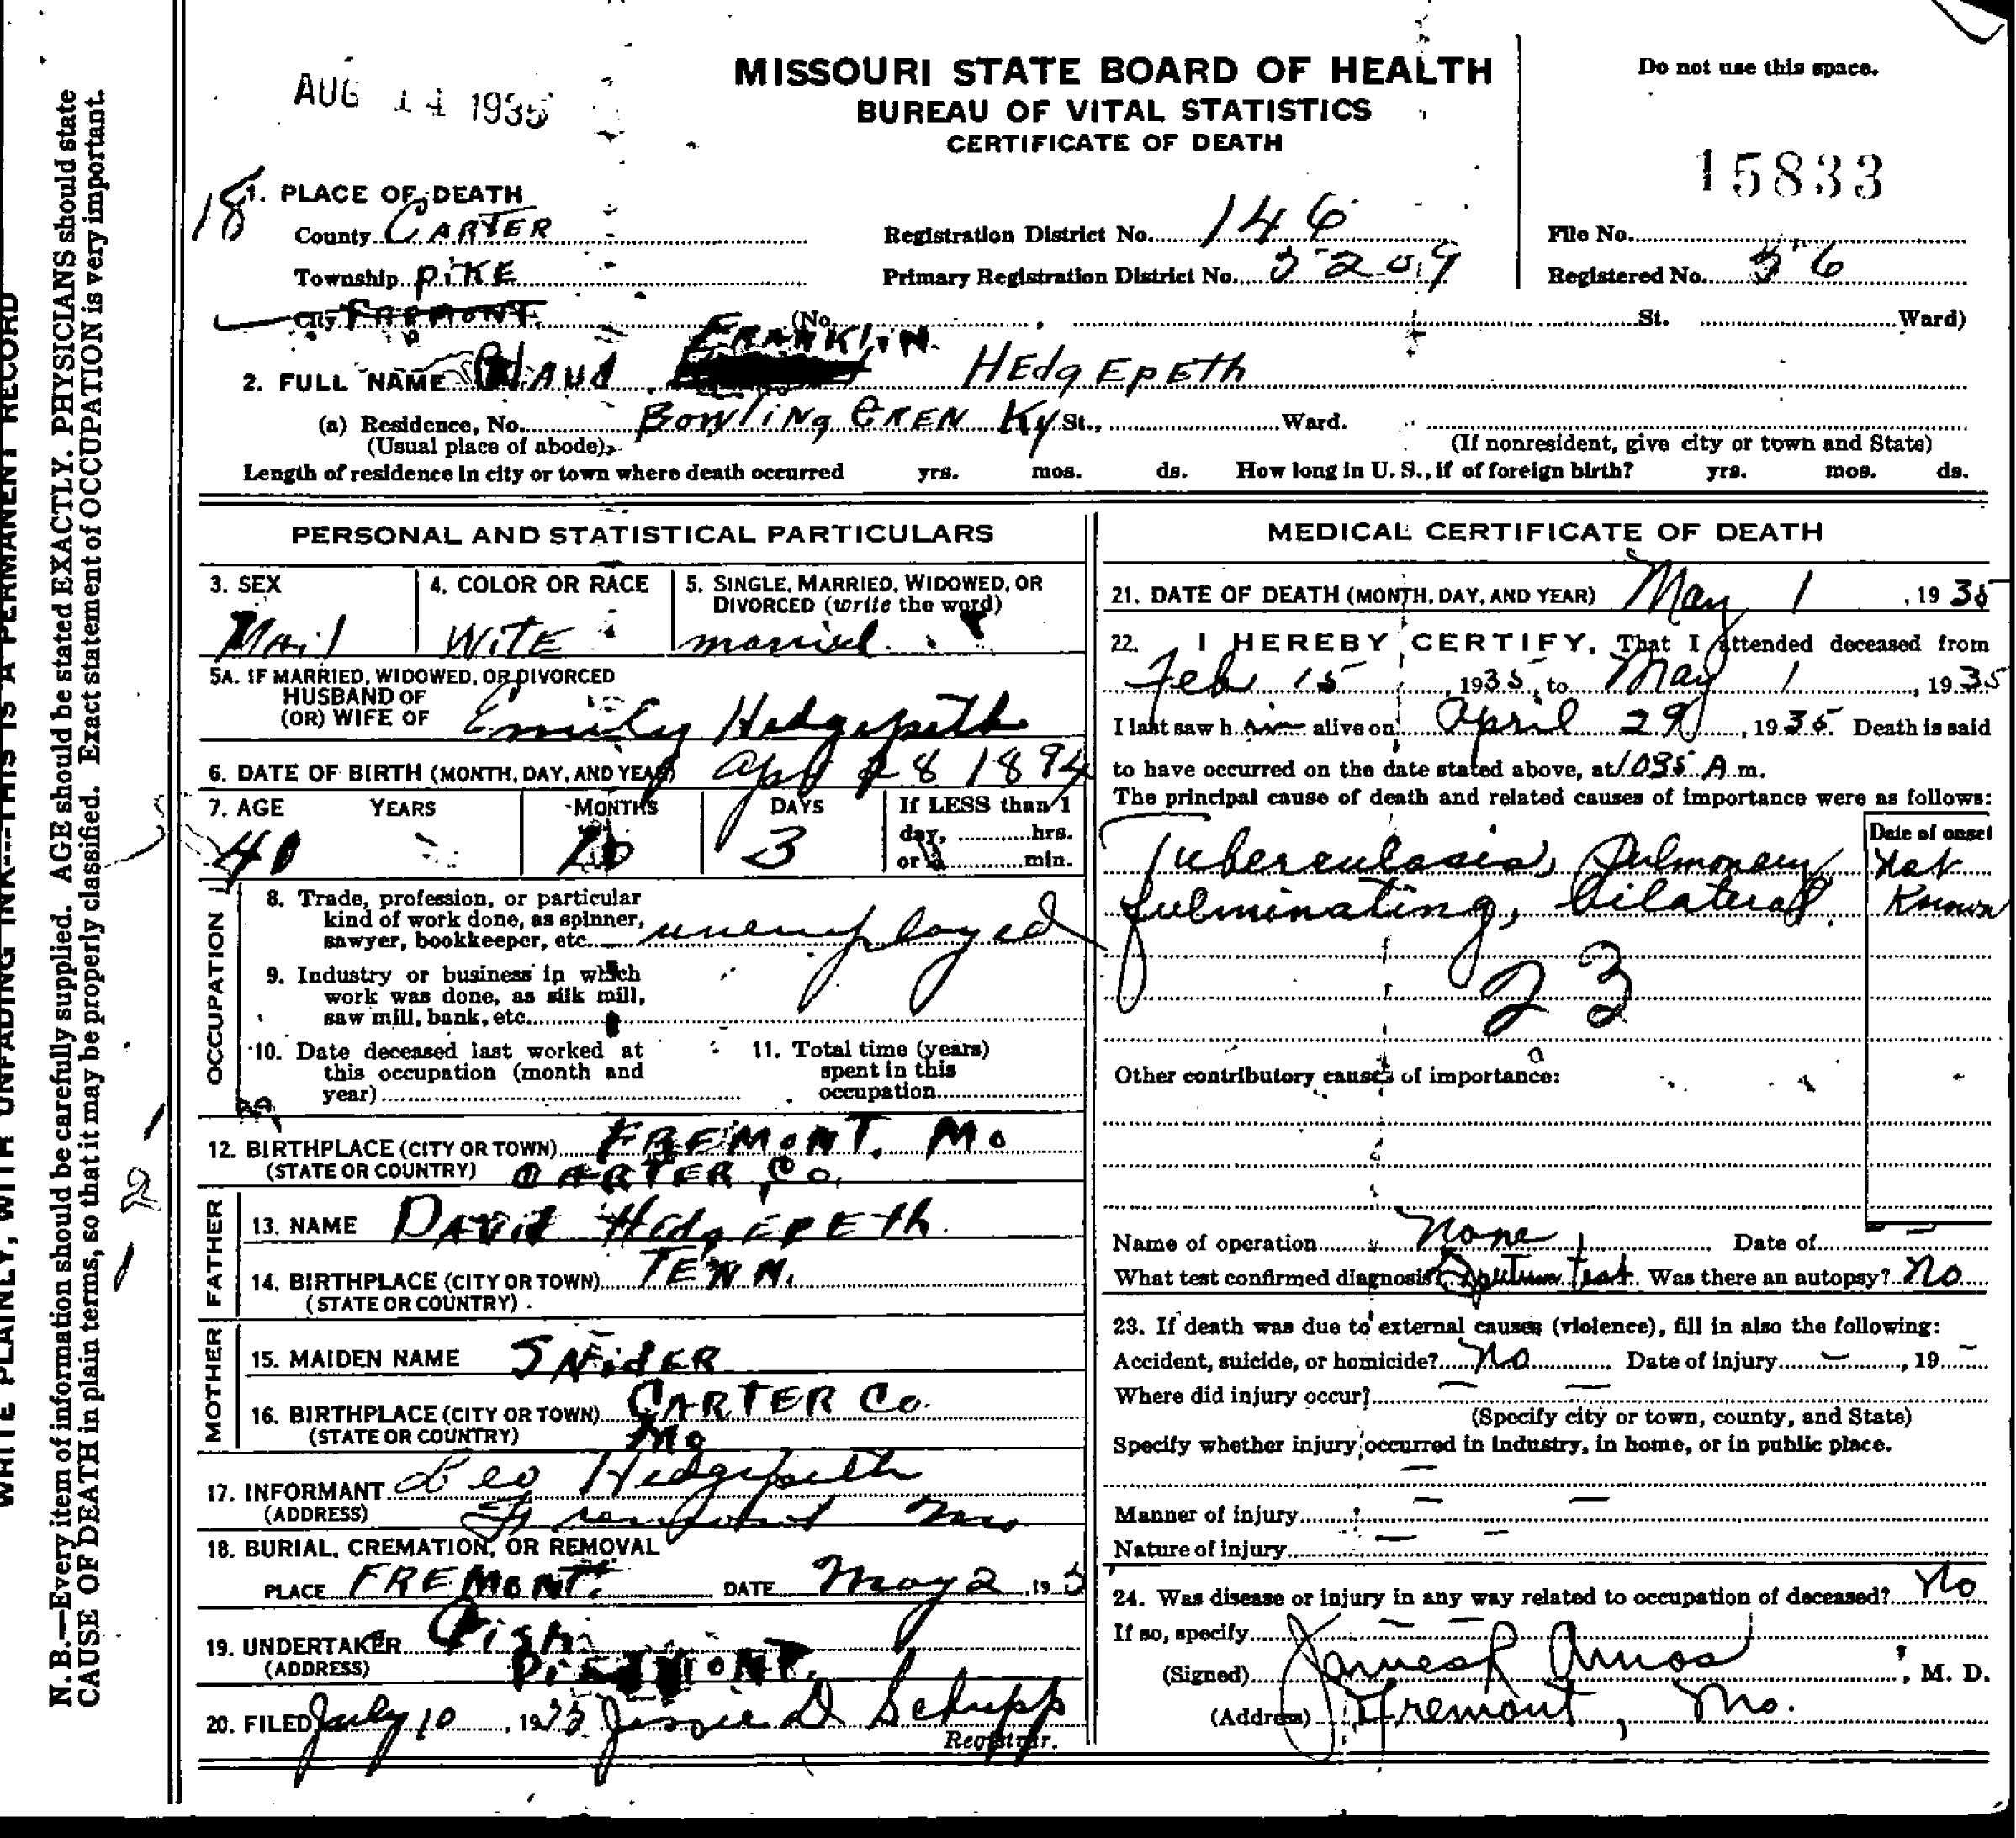 AUG 14 1935
MISSOURI STATE BOARD OF HEALTH
BUREAU OF VITAL STATISTICS
CERTIFICATE OF DEATH
Do not use this space.
15833
18
1. PLACE OF DEATH
County CARTER
Registration District No. 146
File No.
Township PiKE
Primary Registration District No. 5209
Registered No. 36
City FREMONT (No. , St. Ward)
FRANKLiN
2. FULL NAME HEdgEpEth
(a) Residence, No. BowliNg GREN Ky St., Ward.
(Usual place of abode) (If nonresident, give city or town and State)
Length of residence in city or town where death occurred yrs. mos. ds. How long in U. S., if of foreign birth? yrs. mos. ds.
PERSONAL AND STATISTICAL PARTICULARS
3. SEX
4. COLOR OR RACE
5. SINGLE, MARRIED, WIDOWED, OR DIVORCED (write the word)
Mail WitE married
5A. IF MARRIED, WIDOWED, OR DIVORCED
HUSBAND OF
(OR) WIFE OF Emily Hedgepeth
6. DATE OF BIRTH (MONTH, DAY, AND YEAR) 28 1894
7. AGE YEARS MONTHS DAYS If LESS than 1
day, hrs.
or min.
40 3
OCCUPATION
8. Trade, profession, or particular
kind of work done, as spinner,
sawyer, bookkeeper, etc. unemployed
9. Industry or business in which
work was done, as silk mill,
saw mill, bank, etc.
10. Date deceased last worked at
this occupation (month and
year)
11. Total time (years)
spent in this
occupation
12. BIRTHPLACE (CITY OR TOWN) FREMONT. Mo
(STATE OR COUNTRY) CARTER Co.
FATHER
13. NAME DAVid HEdgEPEth
14. BIRTHPLACE (CITY OR TOWN) TENN.
(STATE OR COUNTRY)
MOTHER
15. MAIDEN NAME SNidER
16. BIRTHPLACE (CITY OR TOWN) CARTER Co.
(STATE OR COUNTRY) Mo
17. INFORMANT Leo Hedgepeth
(ADDRESS) Fremont Mo
18. BURIAL, CREMATION, OR REMOVAL
PLACE FREMONT. DATE May 2, 193
19. UNDERTAKER
(ADDRESS)
20. FILED July 10, 1935 Jessie D Schupp
Registrar.
MEDICAL CERTIFICATE OF DEATH
21. DATE OF DEATH (MONTH, DAY, AND YEAR) May 1, 1935
22. I HEREBY CERTIFY, That I attended deceased from
Feb 15, 1935, to May 1, 1935
I last saw him alive on April 29, 1935. Death is said
to have occurred on the date stated above, at 1035 A.m.
The principal cause of death and related causes of importance were as follows:
Date of onset
Tuberculosis, Pulmonary Not
fulminating, bilateral. Known
23
Other contributory causes of importance:
Name of operation None Date of –
What test confirmed diagnosis? Sputum test Was there an autopsy? No
23. If death was due to external causes (violence), fill in also the following:
Accident, suicide, or homicide? No Date of injury –, 19 –
Where did injury occur? – –
(Specify city or town, county, and State)
Specify whether injury occurred in industry, in home, or in public place.
–
Manner of injury – –
Nature of injury – –
24. Was disease or injury in any way related to occupation of deceased? No
If so, specify
(Signed) James R Amos, M. D.
(Address) Fremont, Mo.
WRITE PLAINLY, WITH UNFADING INK---THIS IS A PERMANENT RECORD
N. B.—Every item of information should be carefully supplied. AGE should be stated EXACTLY. PHYSICIANS should state
CAUSE OF DEATH in plain terms, so that it may be properly classified. Exact statement of OCCUPATION is very important.